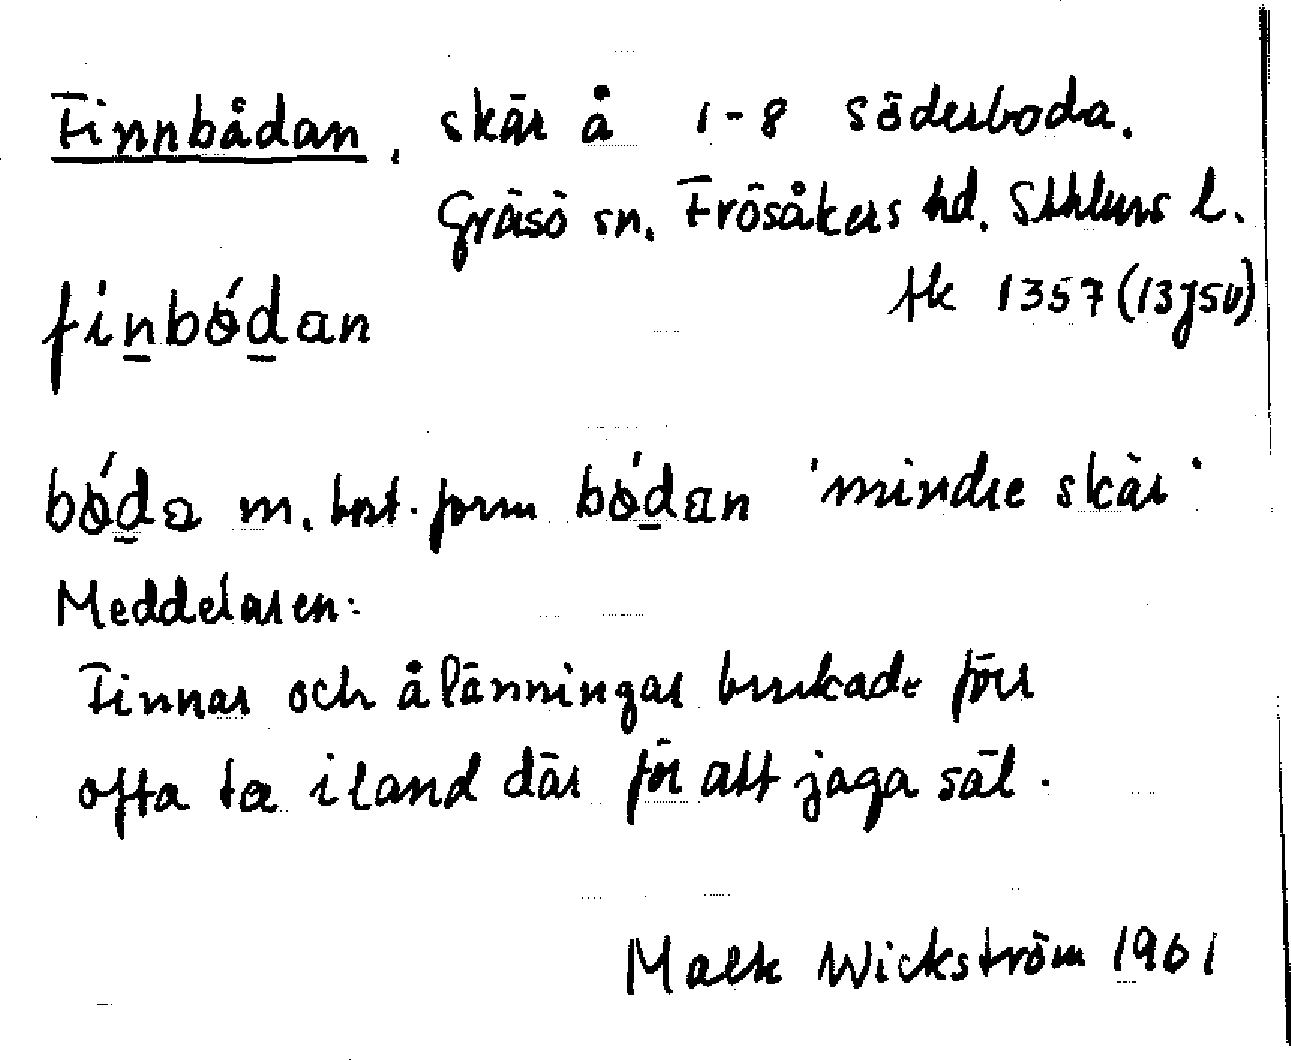 Finnbådan, skär å 1-8 Söderboda.
Gräsö sn. Frösåkers hd. Sthlms l.
fi̱nbó̱dan
ek 1357 (13J5d)
bó̱da m. best. form bó̱dan 'mindre skär'
Meddelaren:
Finnar och ålänningar brukade förr
ofta ta i land där för att jaga säl.
Maek Wickström 1961